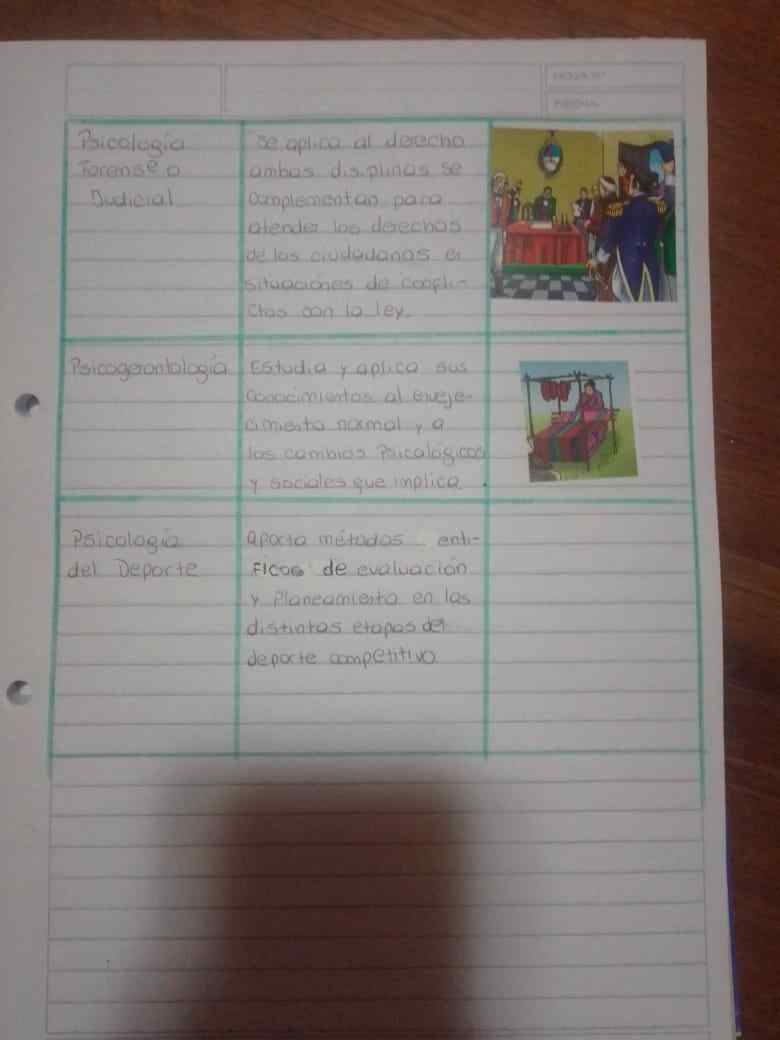 HOJA Nº
FECHA
Psicología
Forense o
Judicial
se aplica al derecho
ambas disiplinas se
complementan para
atender los derechos
de los ciudadanos en
situaciones de confli-
ctos con la ley.
Psicogerontología
Estudia y aplica sus
conocimientos al enveje-
cimiento normal y a
los cambios Psicológicos
y sociales que implica.
Psicología
del Deporte
aporta métodos entí-
Ficos de evaluación
y Planeamiento en las
distintas etapas del
deporte competitivo